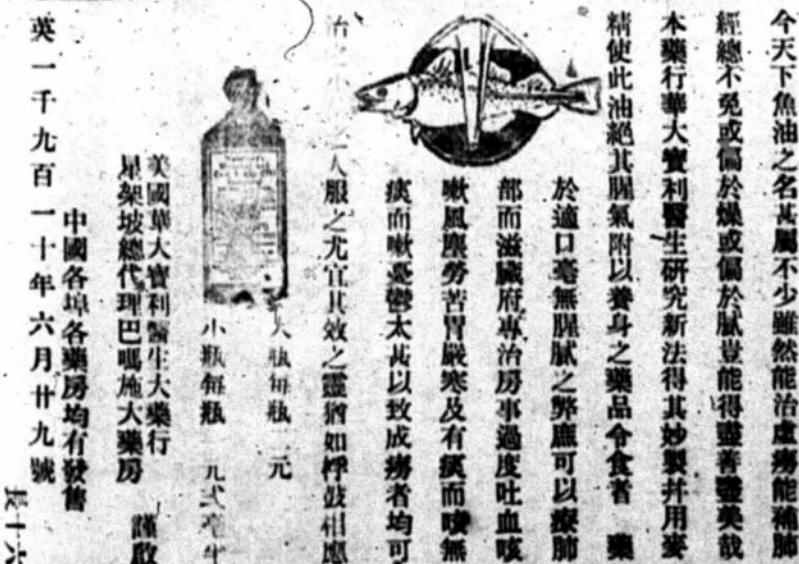 今天下魚油之名甚屬不少雖然能治虛癆能補肺
經總不免或偏於燥或偏於膩豈能得盡善盡美哉
本藥行華大寶利醫生研究新法得其妙製幷用麥
精使此油絕其腥氣附以養身之藥品令食者 藥
於適口毫無腥膩之弊應可以療肺
部而滋臟府專治房事過度吐血咳
嗽風塵勞苦冒嚴寒及有痰而咳無
痰而嗽憂鬱太甚以致成癆者均可
治 小 之人服之尤宜其效之靈猶如桴鼓相應
大瓶每瓶二元
小瓶每瓶一元弍毫半
美國華大寶利醫生大藥行
星架坡總代理巴嗎施大藥房 謹啟
中國各埠各藥房均有發售
英一千九百一十年六月廿九號